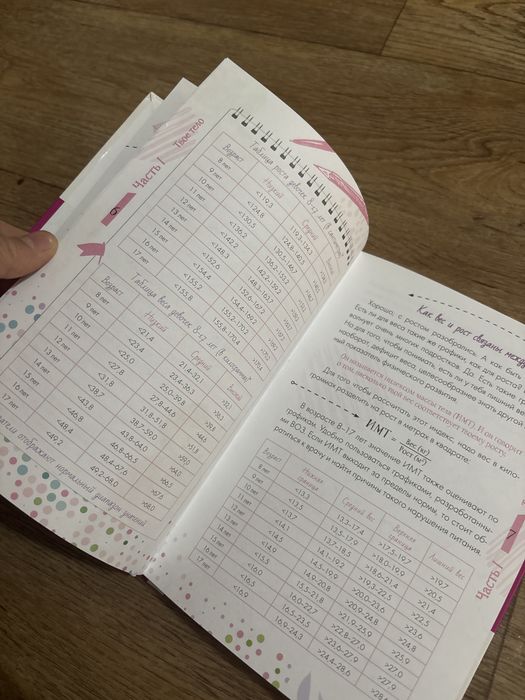 6
Часть I
Твое тело
Таблица роста девочек 8–17 лет (в
Возраст Низкий Средний
8 лет <119.3 119.3-134.3
9 лет <124.8 124.8-140.5
10 лет <130.5 130.5-146.7
11 лет <136.2 136.2-153.2
12 лет <142.2 142.2-159.2
13 лет <148.3 148.3-163.7
14 лет <152.6 152.6-167.2
15 лет <154.4 154.4-169.2
16 лет <155.2 155.2-170.2
17 лет <155.8 155.8-170.4
Таблица веса девочек 8–17 лет (в килограммах)
Возраст Низкий Средний
8 лет <21.4 21.4-32.1
9 лет <23.4 23.4-36.3
10 лет <25.0
11 лет <27.8 27.8-44.6
12 лет <31.8 31.8-51.8
13 лет <38.7 38.7-59.0
14 лет <43.8 43.8-64.0
15 лет <46.8 46.8-66.5
16 лет <48.4 48.4-67.6
17 лет <49.2 49.2-68.0
отображают нормальный диапазон значений
Как вес и рост связаны между
Хорошо, с ростом разобрались. А как быть
Есть ли для веса такие же графики, как для роста?
волнует очень многих подростков. Да, есть такие
Но для того, чтобы понимать, есть ли у тебя лишний
наоборот, дефицит веса, целесообразнее знать другой
ный показатель физического развития.
Он называется индексом массы тела (ИМТ). И он говорит
о том, насколько твой вес соответствует твоему росту.
Для того чтобы рассчитать этот индекс, надо вес в кило-
граммах разделить на рост в метрах в квадрате:
ИМТ = Вес (кг) / Рост (м²)
В возрасте 8–17 лет значение ИМТ также оценивают по
графикам. Можно пользоваться графиками, разработанны-
ми ВОЗ. Если ИМТ выходит за пределы нормы, то стоит об-
ратиться к врачу и найти причины такого нарушения питания.
Возраст Нижняя граница Средний вес Верхняя граница Лишний вес
8 лет <13.3 13.3-17.4 >17.5-19.7 >19.7
9 лет <13.5 13.5-17.9 >18.0-19.9 >20.5
10 лет <13.7 13.7-18.5 >18.6-21.4 >21.4
11 лет <14.1 14.1-19.2 >19.3-22.5 >22.5
12 лет <14.5 14.5-19.9 >20.0-23.6 >23.6
13 лет <14.9 14.9-20.8 >20.9-24.8 >24.8
14 лет <15.5 15.5-21.8 >21.9-25.9 >25.9
15 лет <16.0 16.0-22.7 >22.8-27.0 >27.0
16 лет <16.5 16.5-23.5 >23.6-27.9 >27.9
17 лет <16.9 16.9-24.3 >24.4-28.6
7
Часть I